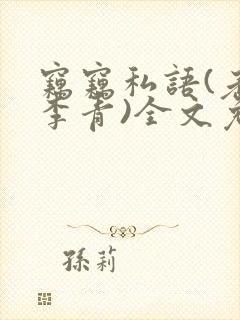 竊竊私語(
李青)全文
孫莉